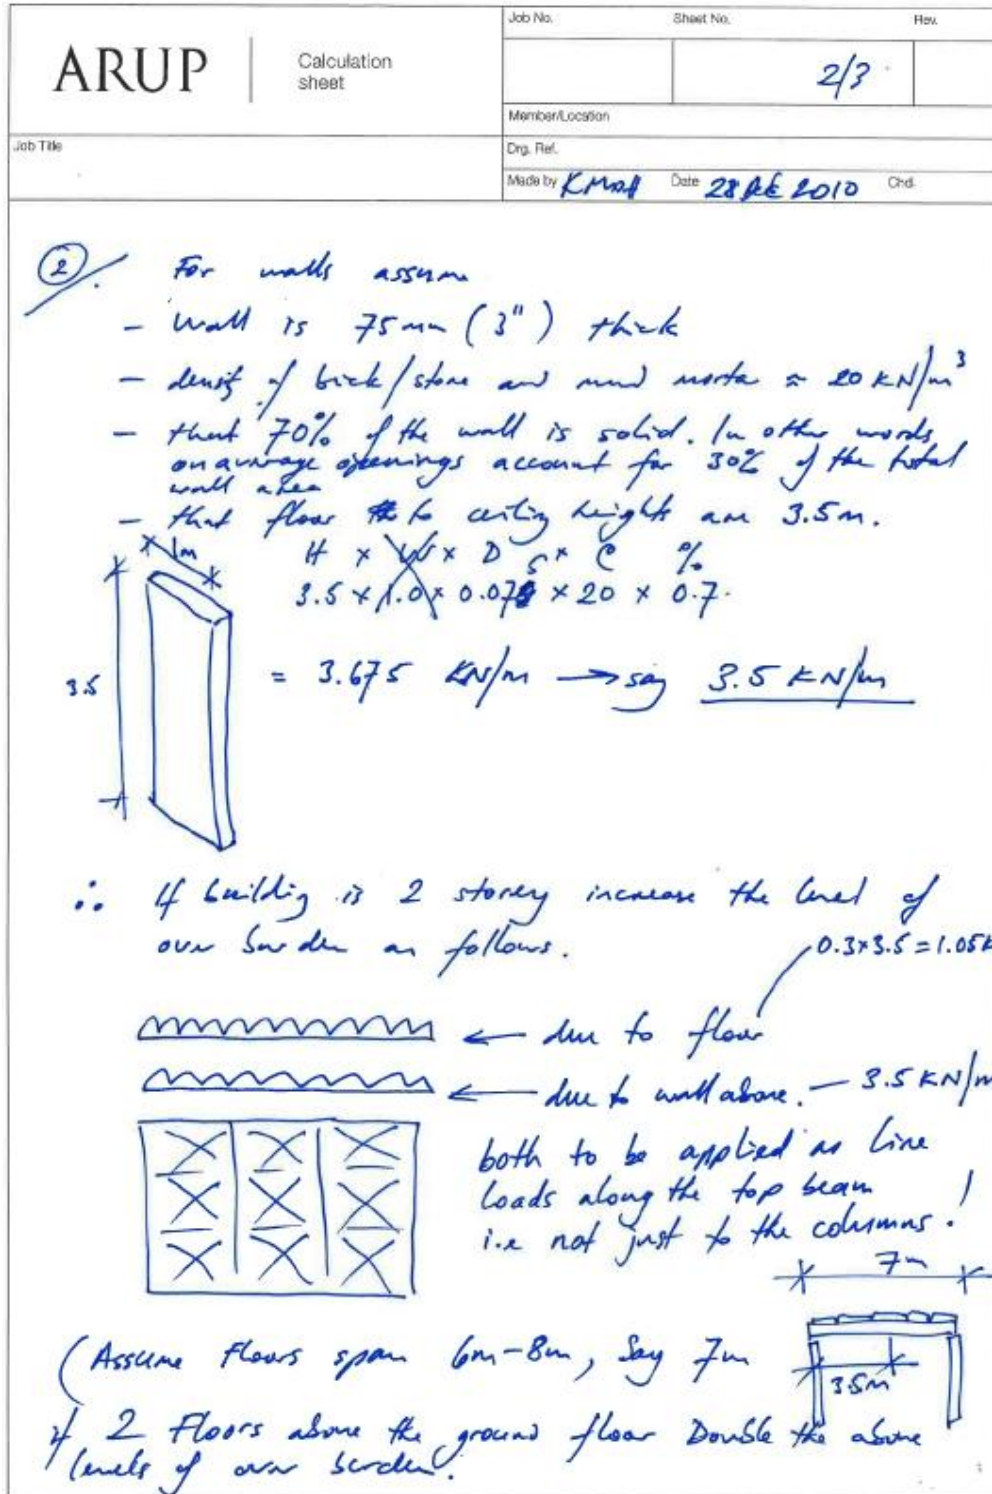 ARUP
Calculation
sheet
Job No.
Sheet No.
Rev.
2/3
Member/Location
Job Title
Drg. Ref.
Made by
Date 28 2010
Chd.
2. For walls assume
- Wall is 75mm (3") thick
- density of brick/stone and mud mortar ≈ 20 KN/m³
- that 70% of the wall is solid. In other words
on average openings account for 30% of the total
wall area
- that floor to ceiling heights are 3.5m.
1m
H x W x D x ρ %
3.5 x 1.0 x 0.075 x 20 x 0.7.
3.5
= 3.675 KN/m → say 3.5 KN/m
∴ If building is 2 storey increase the level of
over burden as follows.
0.3x3.5=1.05K
← due to floor
← due to wall above. — 3.5 KN/m
both to be applied as line
loads along the top beam
i.e not just to the columns!
7m
(Assume Floors span 6m-8m, Say 7m
3.5m
if 2 Floors above the ground floor Double the above
levels of over burden.